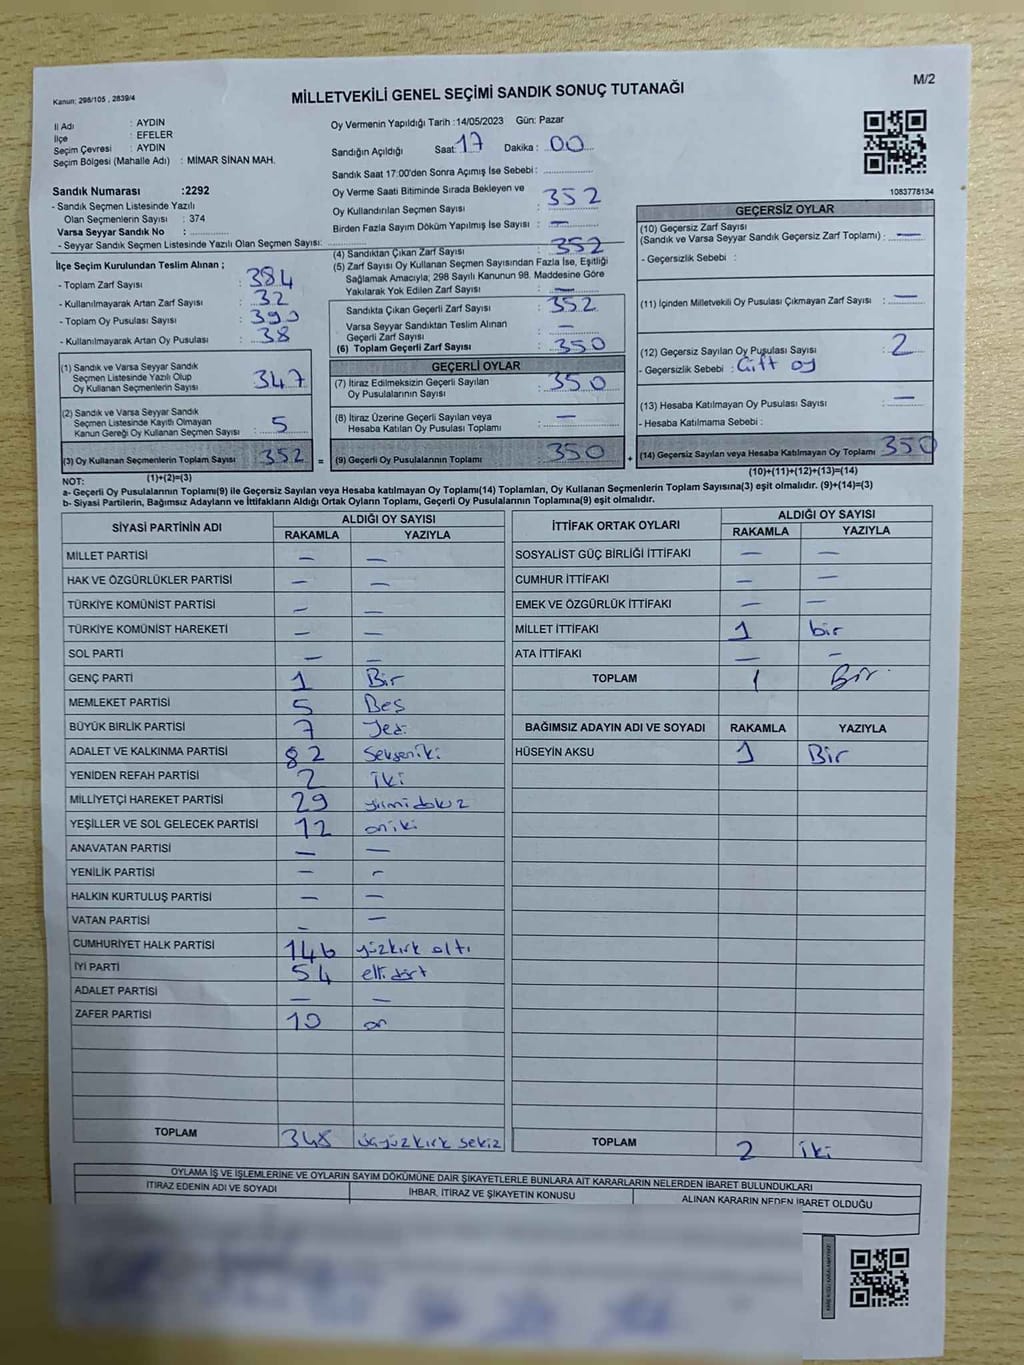 Kanun: 298/105 , 2839/4
M/2
MİLLETVEKİLİ GENEL SEÇİMİ SANDIK SONUÇ TUTANAĞI
İl Adı : AYDIN
İlçe : EFELER
Seçim Çevresi : AYDIN
Seçim Bölgesi (Mahalle Adı) : MİMAR SİNAN MAH.
Sandık Numarası :2292
- Sandık Seçmen Listesinde Yazılı
Olan Seçmenlerin Sayısı : 374
Varsa Seyyar Sandık No :
- Seyyar Sandık Seçmen Listesinde Yazılı Olan Seçmen Sayısı:
Oy Vermenin Yapıldığı Tarih :14/05/2023 Gün: Pazar
Sandığın Açıldığı Saat: 17 Dakika : 00
Sandık Saat 17:00'den Sonra Açımış İse Sebebi:
Oy Verme Saati Bitiminde Sırada Bekleyen ve
Oy Kullandırılan Seçmen Sayısı : 352
Birden Fazla Sayım Döküm Yapılmış İse Sayısı : —
1083778134
İlçe Seçim Kurulundan Teslim Alınan ;
- Toplam Zarf Sayısı : 384
- Kullanılmayarak Artan Zarf Sayısı : 32
- Toplam Oy Pusulası Sayısı : 390
- Kullanılmayarak Artan Oy Pusulası : 38
(1) Sandık ve Varsa Seyyar Sandık
Seçmen Listesinde Yazılı Olup
Oy Kullanan Seçmenlerin Sayısı 347
(2) Sandık ve Varsa Seyyar Sandık
Seçmen Listesinde Kayıtlı Olmayan
Kanun Gereği Oy Kullanan Seçmen Sayısı : 5
(3) Oy Kullanan Seçmenlerin Toplam Sayısı 352 =
(1)+(2)=(3)
(4) Sandıktan Çıkan Zarf Sayısı : 352
(5) Zarf Sayısı Oy Kullanan Seçmen Sayısından Fazla İse, Eşitliği
Sağlamak Amacıyla; 298 Sayılı Kanunun 98. Maddesine Göre
Yakılarak Yok Edilen Zarf Sayısı : —
Sandıkta Çıkan Geçerli Zarf Sayısı : 352
Varsa Seyyar Sandıktan Teslim Alınan
Geçerli Zarf Sayısı : —
(6) Toplam Geçerli Zarf Sayısı : 350
GEÇERLİ OYLAR
(7) İtiraz Edilmeksizin Geçerli Sayılan
Oy Pusulalarının Sayısı : 350
(8) İtiraz Üzerine Geçerli Sayılan veya
Hesaba Katılan Oy Pusulası Toplamı : —
(9) Geçerli Oy Pusulalarının Toplamı : 350 +
GEÇERSİZ OYLAR
(10) Geçersiz Zarf Sayısı
(Sandık ve Varsa Seyyar Sandık Geçersiz Zarf Toplamı) : —
- Geçersizlik Sebebi :
(11) İçinden Milletvekili Oy Pusulası Çıkmayan Zarf Sayısı : —
(12) Geçersiz Sayılan Oy Pusulası Sayısı : 2
- Geçersizlik Sebebi : Çift oy
(13) Hesaba Katılmayan Oy Pusulası Sayısı : —
- Hesaba Katılmama Sebebi :
(14) Geçersiz Sayılan veya Hesaba Katılmayan Oy Toplamı 350
(10)+(11)+(12)+(13)=(14)
NOT:
a- Geçerli Oy Pusulalarının Toplamı(9) ile Geçersiz Sayılan veya Hesaba katılmayan Oy Toplamı(14) Toplamları, Oy Kullanan Seçmenlerin Toplam Sayısına(3) eşit olmalıdır. (9)+(14)=(3)
b- Siyasi Partilerin, Bağımsız Adayların ve İttifakların Aldığı Ortak Oyların Toplamı, Geçerli Oy Pusulalarının Toplamına(9) eşit olmalıdır.
SİYASİ PARTİNİN ADI ALDIĞI OY SAYISI
RAKAMLA YAZIYLA
MİLLET PARTİSİ — —
HAK VE ÖZGÜRLÜKLER PARTİSİ — —
TÜRKİYE KOMÜNİST PARTİSİ — —
TÜRKİYE KOMÜNİST HAREKETİ — —
SOL PARTİ — —
GENÇ PARTİ 1 Bir
MEMLEKET PARTİSİ 5 Beş
BÜYÜK BİRLİK PARTİSİ 7 Yedi
ADALET VE KALKINMA PARTİSİ 82 Sekseniki
YENİDEN REFAH PARTİSİ 2 iki
MİLLİYETÇİ HAREKET PARTİSİ 29 yirmidokuz
YEŞİLLER VE SOL GELECEK PARTİSİ 12 oniki
ANAVATAN PARTİSİ — —
YENİLİK PARTİSİ — —
HALKIN KURTULUŞ PARTİSİ — —
VATAN PARTİSİ — —
CUMHURİYET HALK PARTİSİ 146 yüzkırk altı
İYİ PARTİ 54 elli dört
ADALET PARTİSİ — —
ZAFER PARTİSİ 10 on
TOPLAM 348 üçyüzkırk sekiz
İTTİFAK ORTAK OYLARI ALDIĞI OY SAYISI
RAKAMLA YAZIYLA
SOSYALİST GÜÇ BİRLİĞİ İTTİFAKI — —
CUMHUR İTTİFAKI — —
EMEK VE ÖZGÜRLÜK İTTİFAKI — —
MİLLET İTTİFAKI 1 bir
ATA İTTİFAKI — —
TOPLAM 1 Bir
BAĞIMSIZ ADAYIN ADI VE SOYADI RAKAMLA YAZIYLA
HÜSEYİN AKSU 1 Bir
TOPLAM 2 iki
OYLAMA İŞ VE İŞLEMLERİNE VE OYLARIN SAYIM DÖKÜMÜNE DAİR ŞİKAYETLERLE BUNLARA AİT KARARLARIN NELERDEN İBARET BULUNDUKLARI
İTİRAZ EDENİN ADI VE SOYADI İHBAR, İTİRAZ VE ŞİKAYETİN KONUSU ALINAN KARARIN NEDEN İBARET OLDUĞU